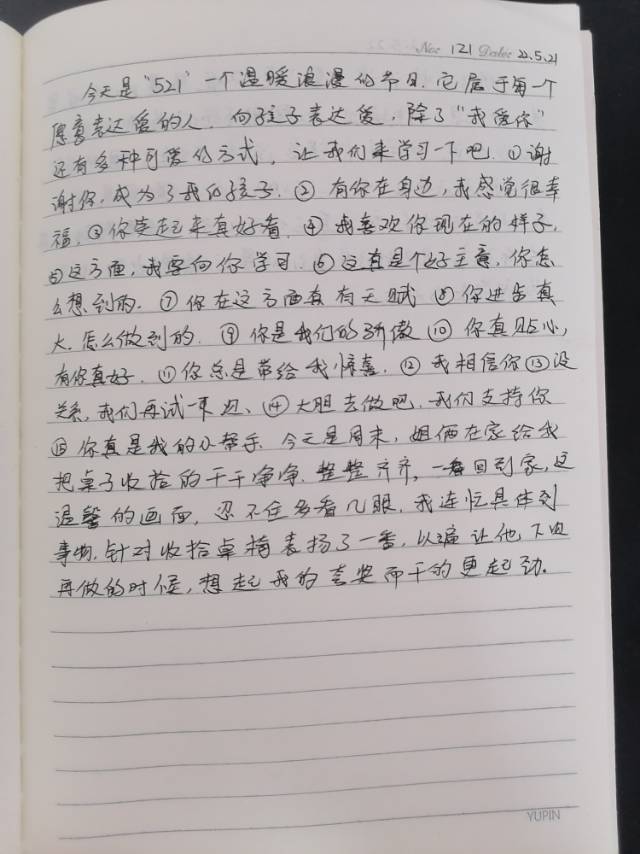 No: 121 Date: 22.5.21
今天是"521"一个温暖浪漫的节日.它属于每一个
愿意表达爱的人.向孩子表达爱,除了"我爱你"
还有多种可爱的方式,让我们来学习一下吧.①谢
谢你,成为了我的孩子.②有你在身边,我感觉很幸
福.③你笑起来真好看.④我喜欢你现在的样子.
⑤这方面,我要向你学习.⑥这真是个好主意.你怎
么想到的.⑦你在这方面真有天赋⑧你进步真
大.怎么做到的.⑨你是我们的骄傲⑩你真贴心,
有你真好.⑪你总是带给我惊喜.⑫我相信你⑬没
关系,我们再试一次.⑭大胆去做吧.我们支持你
⑮你真是我的小帮手.今天是周末,姐俩在家给我
把桌子收拾的干干净净.整整齐齐,一回到家,这
温馨的画面,忍不住多看几眼.我连忙具体到
事物.针对收拾桌椅表扬了一番,以让他下回
再做的时候,想起我的夸奖而干的更起劲.
YUPIN